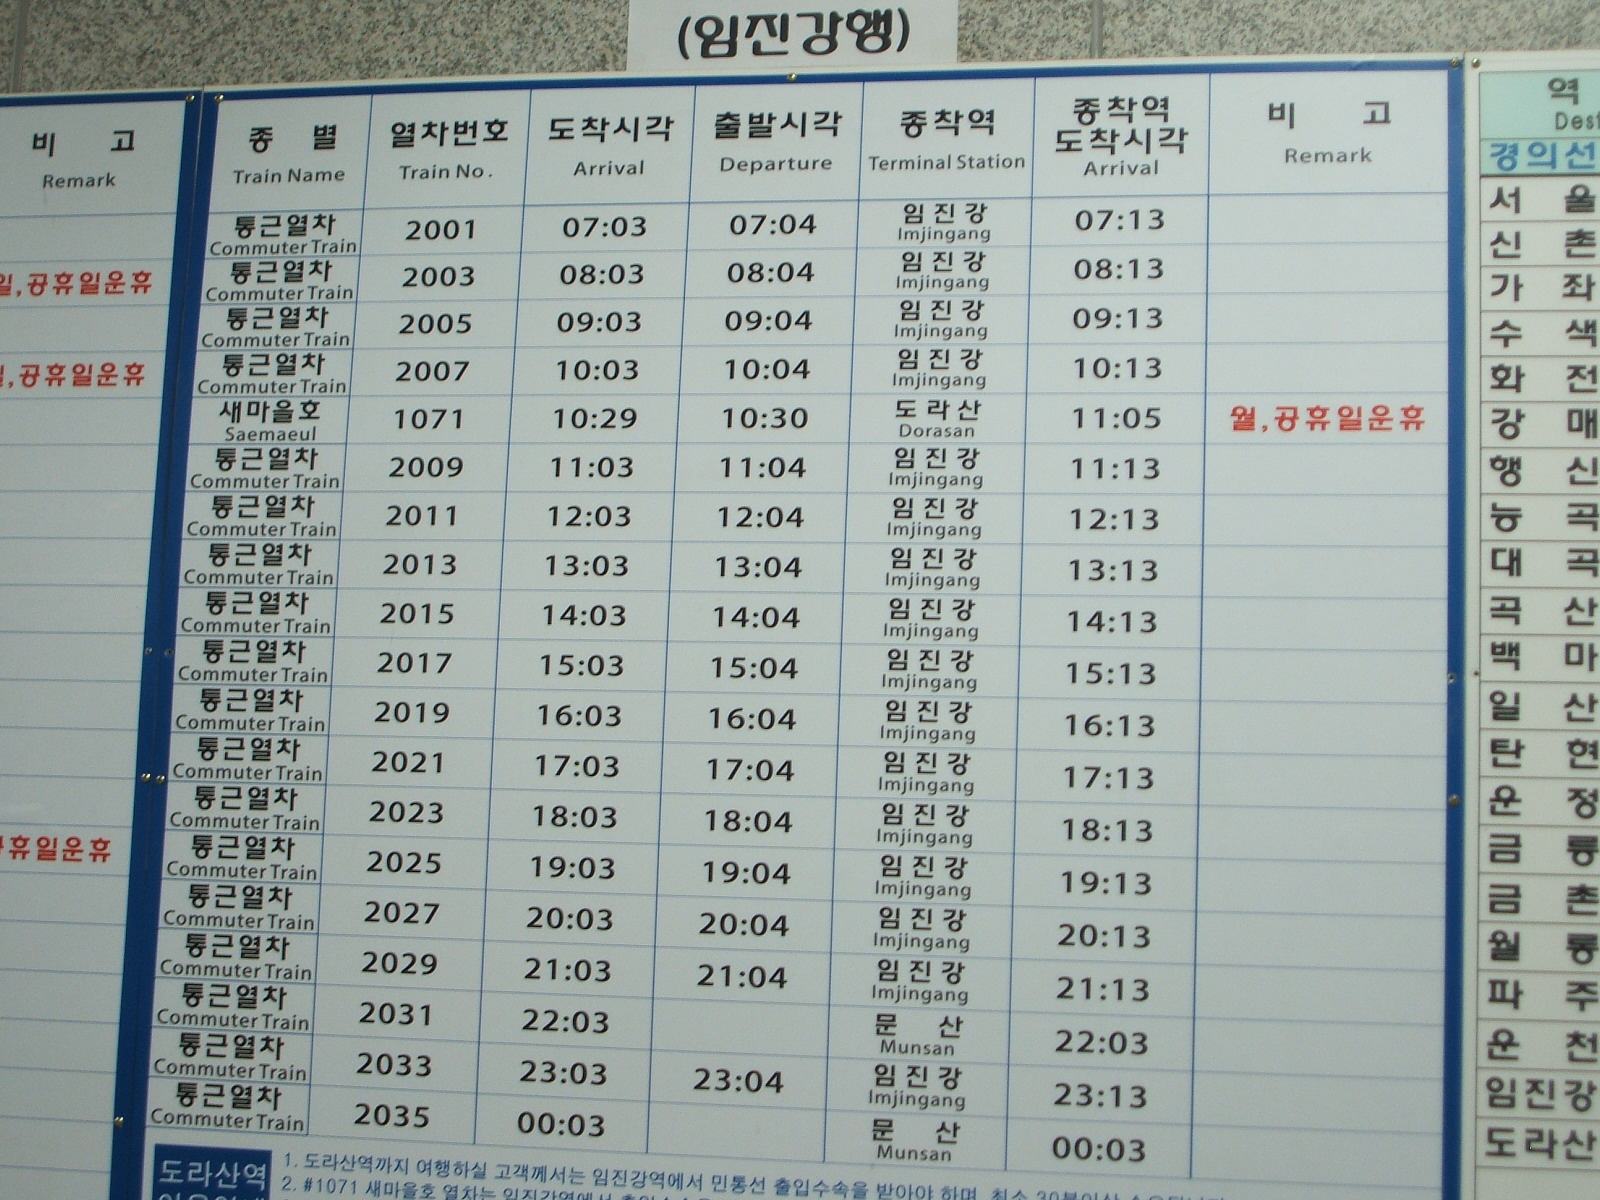 (임진강행)
비 고
Remark
공휴일운휴
공휴일운휴
휴일운휴
종 별 열차번호 도착시각 출발시각 종착역 종착역 도착시각 비 고
Train Name Train No. Arrival Departure Terminal Station Arrival Remark
통근열차 2001 07:03 07:04 임진강 07:13
Commuter Train Imjingang
통근열차 2003 08:03 08:04 임진강 08:13
Commuter Train Imjingang
통근열차 2005 09:03 09:04 임진강 09:13
Commuter Train Imjingang
통근열차 2007 10:03 10:04 임진강 10:13
Commuter Train Imjingang
새마을호 1071 10:29 10:30 도라산 11:05 월,공휴일운휴
Saemaeul Dorasan
통근열차 2009 11:03 11:04 임진강 11:13
Commuter Train Imjingang
통근열차 2011 12:03 12:04 임진강 12:13
Commuter Train Imjingang
통근열차 2013 13:03 13:04 임진강 13:13
Commuter Train Imjingang
통근열차 2015 14:03 14:04 임진강 14:13
Commuter Train Imjingang
통근열차 2017 15:03 15:04 임진강 15:13
Commuter Train Imjingang
통근열차 2019 16:03 16:04 임진강 16:13
Commuter Train Imjingang
통근열차 2021 17:03 17:04 임진강 17:13
Commuter Train Imjingang
통근열차 2023 18:03 18:04 임진강 18:13
Commuter Train Imjingang
통근열차 2025 19:03 19:04 임진강 19:13
Commuter Train Imjingang
통근열차 2027 20:03 20:04 임진강 20:13
Commuter Train Imjingang
통근열차 2029 21:03 21:04 임진강 21:13
Commuter Train Imjingang
통근열차 2031 22:03 문 산 22:03
Commuter Train Munsan
통근열차 2033 23:03 23:04 임진강 23:13
Commuter Train Imjingang
통근열차 2035 00:03 문 산 00:03
Commuter Train Munsan
도라산역
1. 도라산역까지 여행하실 고객께서는 임진강역에서 민통선 출입수속을 받아야 하며, 최소 30분이상
2. #1071 새마을호 열차는 임진강역에서
역
Dest
경의선
서 울
신 촌
가 좌
수 색
화 전
강 매
행 신
능 곡
대 곡
곡 산
백 마
일 산
탄 현
운 정
금 릉
금 촌
월 롱
파 주
운 천
임진강
도라산